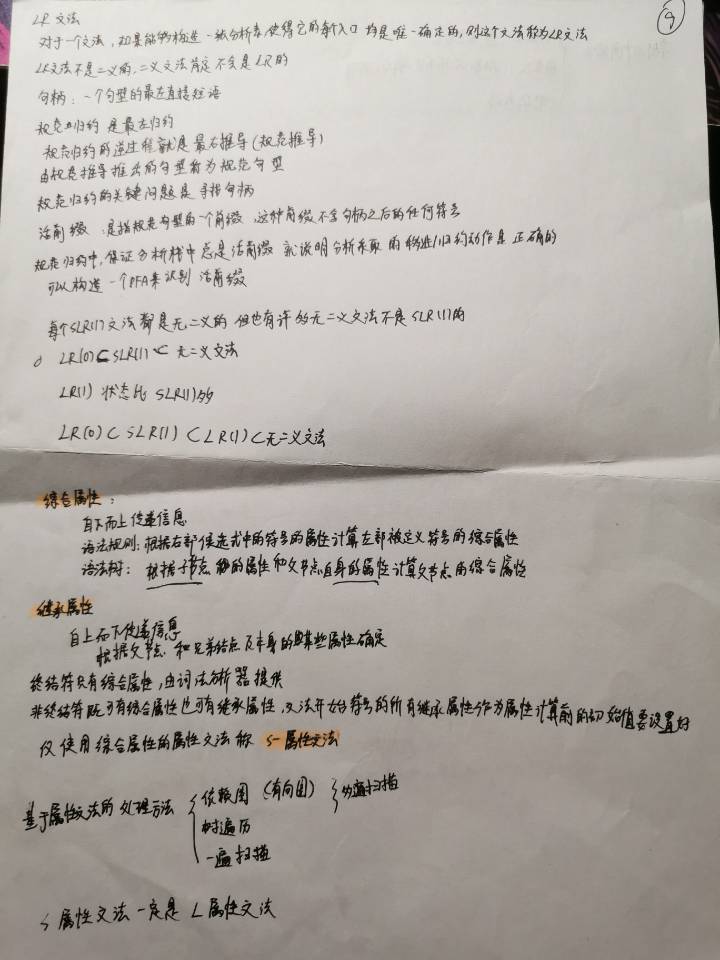 ⑨
LR 文法
对于一个文法,如果能够构造一张分析表,使得它的每个入口均是唯一确定的,则这个文法称为LR文法
LR文法不是二义的,二义文法肯定不会是LR的
句柄:一个句型的最左直接短语
规范归约是最左归约
规范归约的逆过程就是最右推导(规范推导)
由规范推导推出的句型称为规范句型
规范归约的关键问题是寻找句柄
活前缀:是指规范句型的一个前缀,这种前缀不含句柄之后的任何符号
规范归约中,保证分析栈中总是活前缀 就说明分析采取的移进/归约动作是正确的
可以构造一个DFA来识别活前缀
每个SLR(1)文法都是无二义的 但也有许多无二义文法不是SLR(1)的
LR(0)⊂SLR(1)⊂无二义文法
LR(1) 状态比 SLR(1)多
LR(0)⊂SLR(1)⊂LR(1)⊂无二义文法
综合属性:
自下而上传递信息
语法规则:根据右部候选式中的符号的属性计算左部被定义符号的综合属性
语法树:根据子节点的属性和父节点自身的属性计算父节点的综合属性
继承属性
自上而下传递信息
根据父节点和兄弟结点及本身的某些属性确定
终结符只有综合属性,由词法分析器提供
非终结符既可有综合属性也可有继承属性,文法开始符号的所有继承属性作为属性计算前的初始值要设置好
仅使用综合属性的属性文法称 S-属性文法
基于属性文法的处理方法
依赖图(有向图)
树遍历
一遍扫描
多遍扫描
S属性文法一定是L属性文法